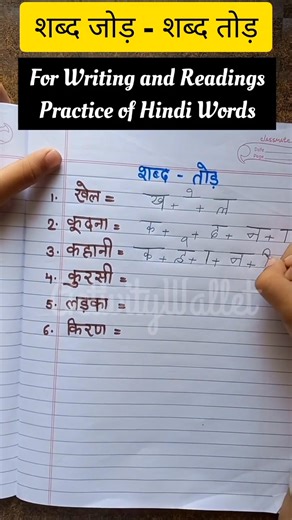 शब्द जोड़ - शब्द तोड़
For Writing and Readings
Practice of Hindi Words
classmate
Date
Page
शब्द - तोड़
1. खेल = ख + े + ल
2. कूदना = क + ू + द + न + ा
3. कहानी = क + ह + ा + न + ी
4. कुरसी =
5. लड़का =
6. किरण =